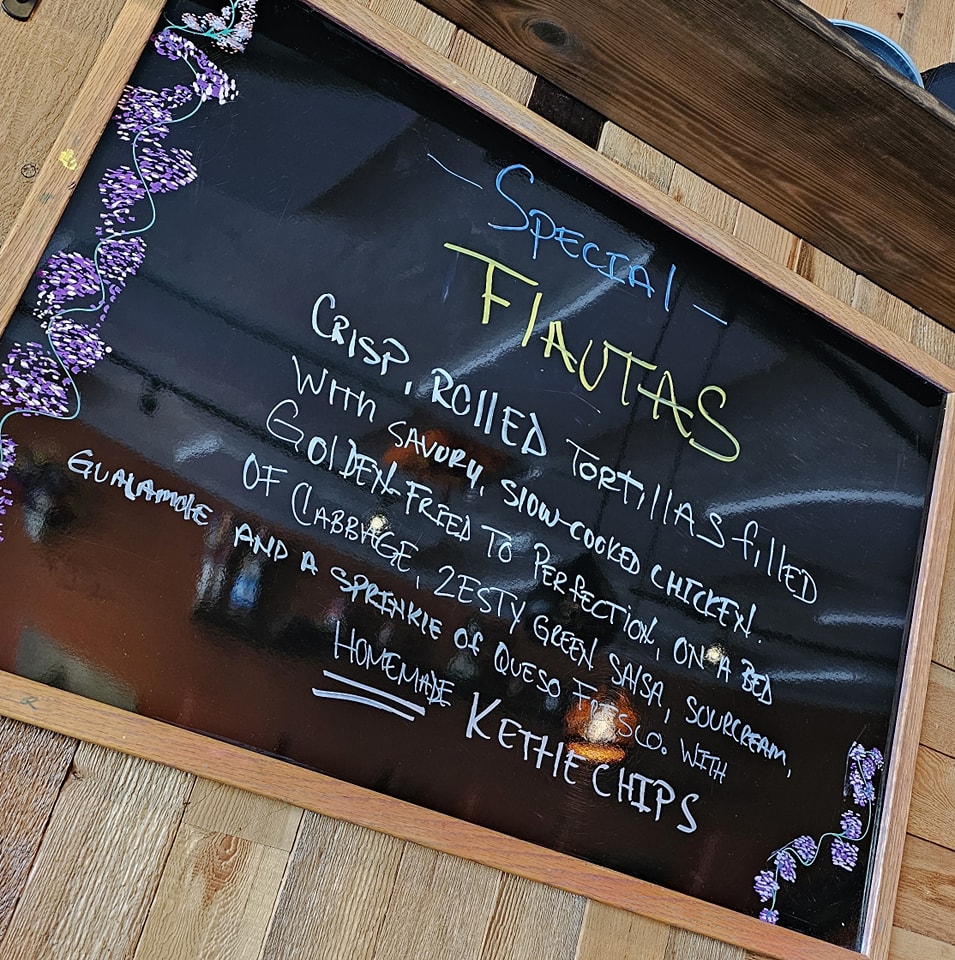 - Special -
Flautas
Crisp, Rolled Tortillas filled
With savory, slow-cooked chicken.
Golden-Fried to perfection, on a bed
of Clabbage, zesty green salsa, sourcream,
Gualamole and a sprinkle of queso fresco. With
Homemade Kettle chips